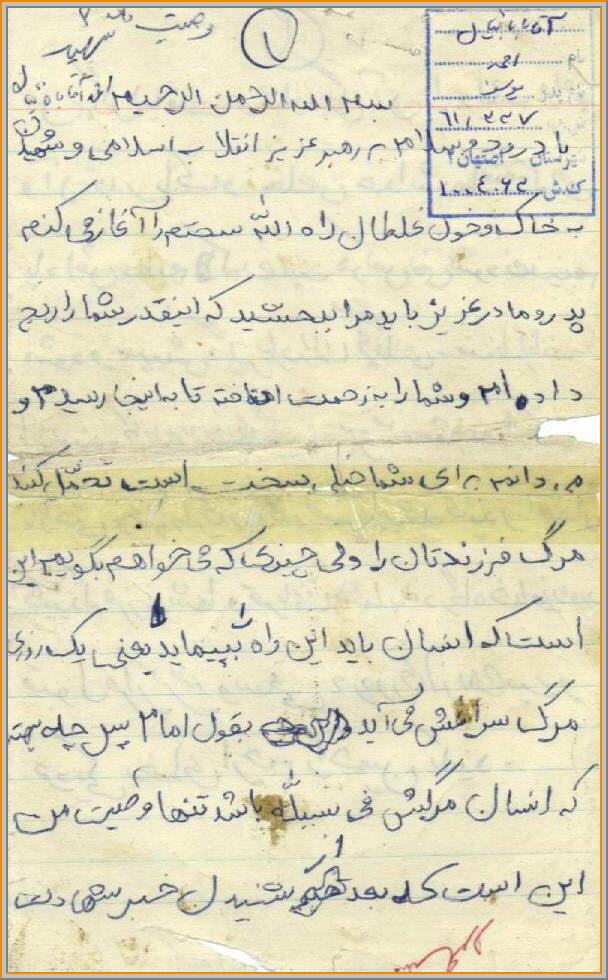 وصیت نامه شهید
۱
آقابابائیان
نام احمد
نام پدر یوسف
۶۱/۳۳۷
شهرستان اصفهان ۲
کدش ۱۰۰۴۰۶۲
بسم الله الرحمن الرحیم
با درود و سلام به رهبر عزیز انقلاب اسلامی و شهیدان
به خاک و خون غلطان راه الله سخنم را آغاز می کنم
پدر و مادر عزیز باید مرا ببخشید که اینقدر شما را رنج
داده ام و شما را به زحمت انداخته تا به اینجا رسیدم و
می دانم برای شما خیلی سخت است تحمّل کنید
مرگ فرزندتان را ولی چیزی که می خواهم بگویم این
است که انسان باید این راه را بپیماید یعنی یک روزی
مرگ سراغش می آید بقول امام پس چه بهتر
که انسان مرگش فی سبیل الله باشد تنها وصیت من
این است که بعد از شنیدن خبر شهادت